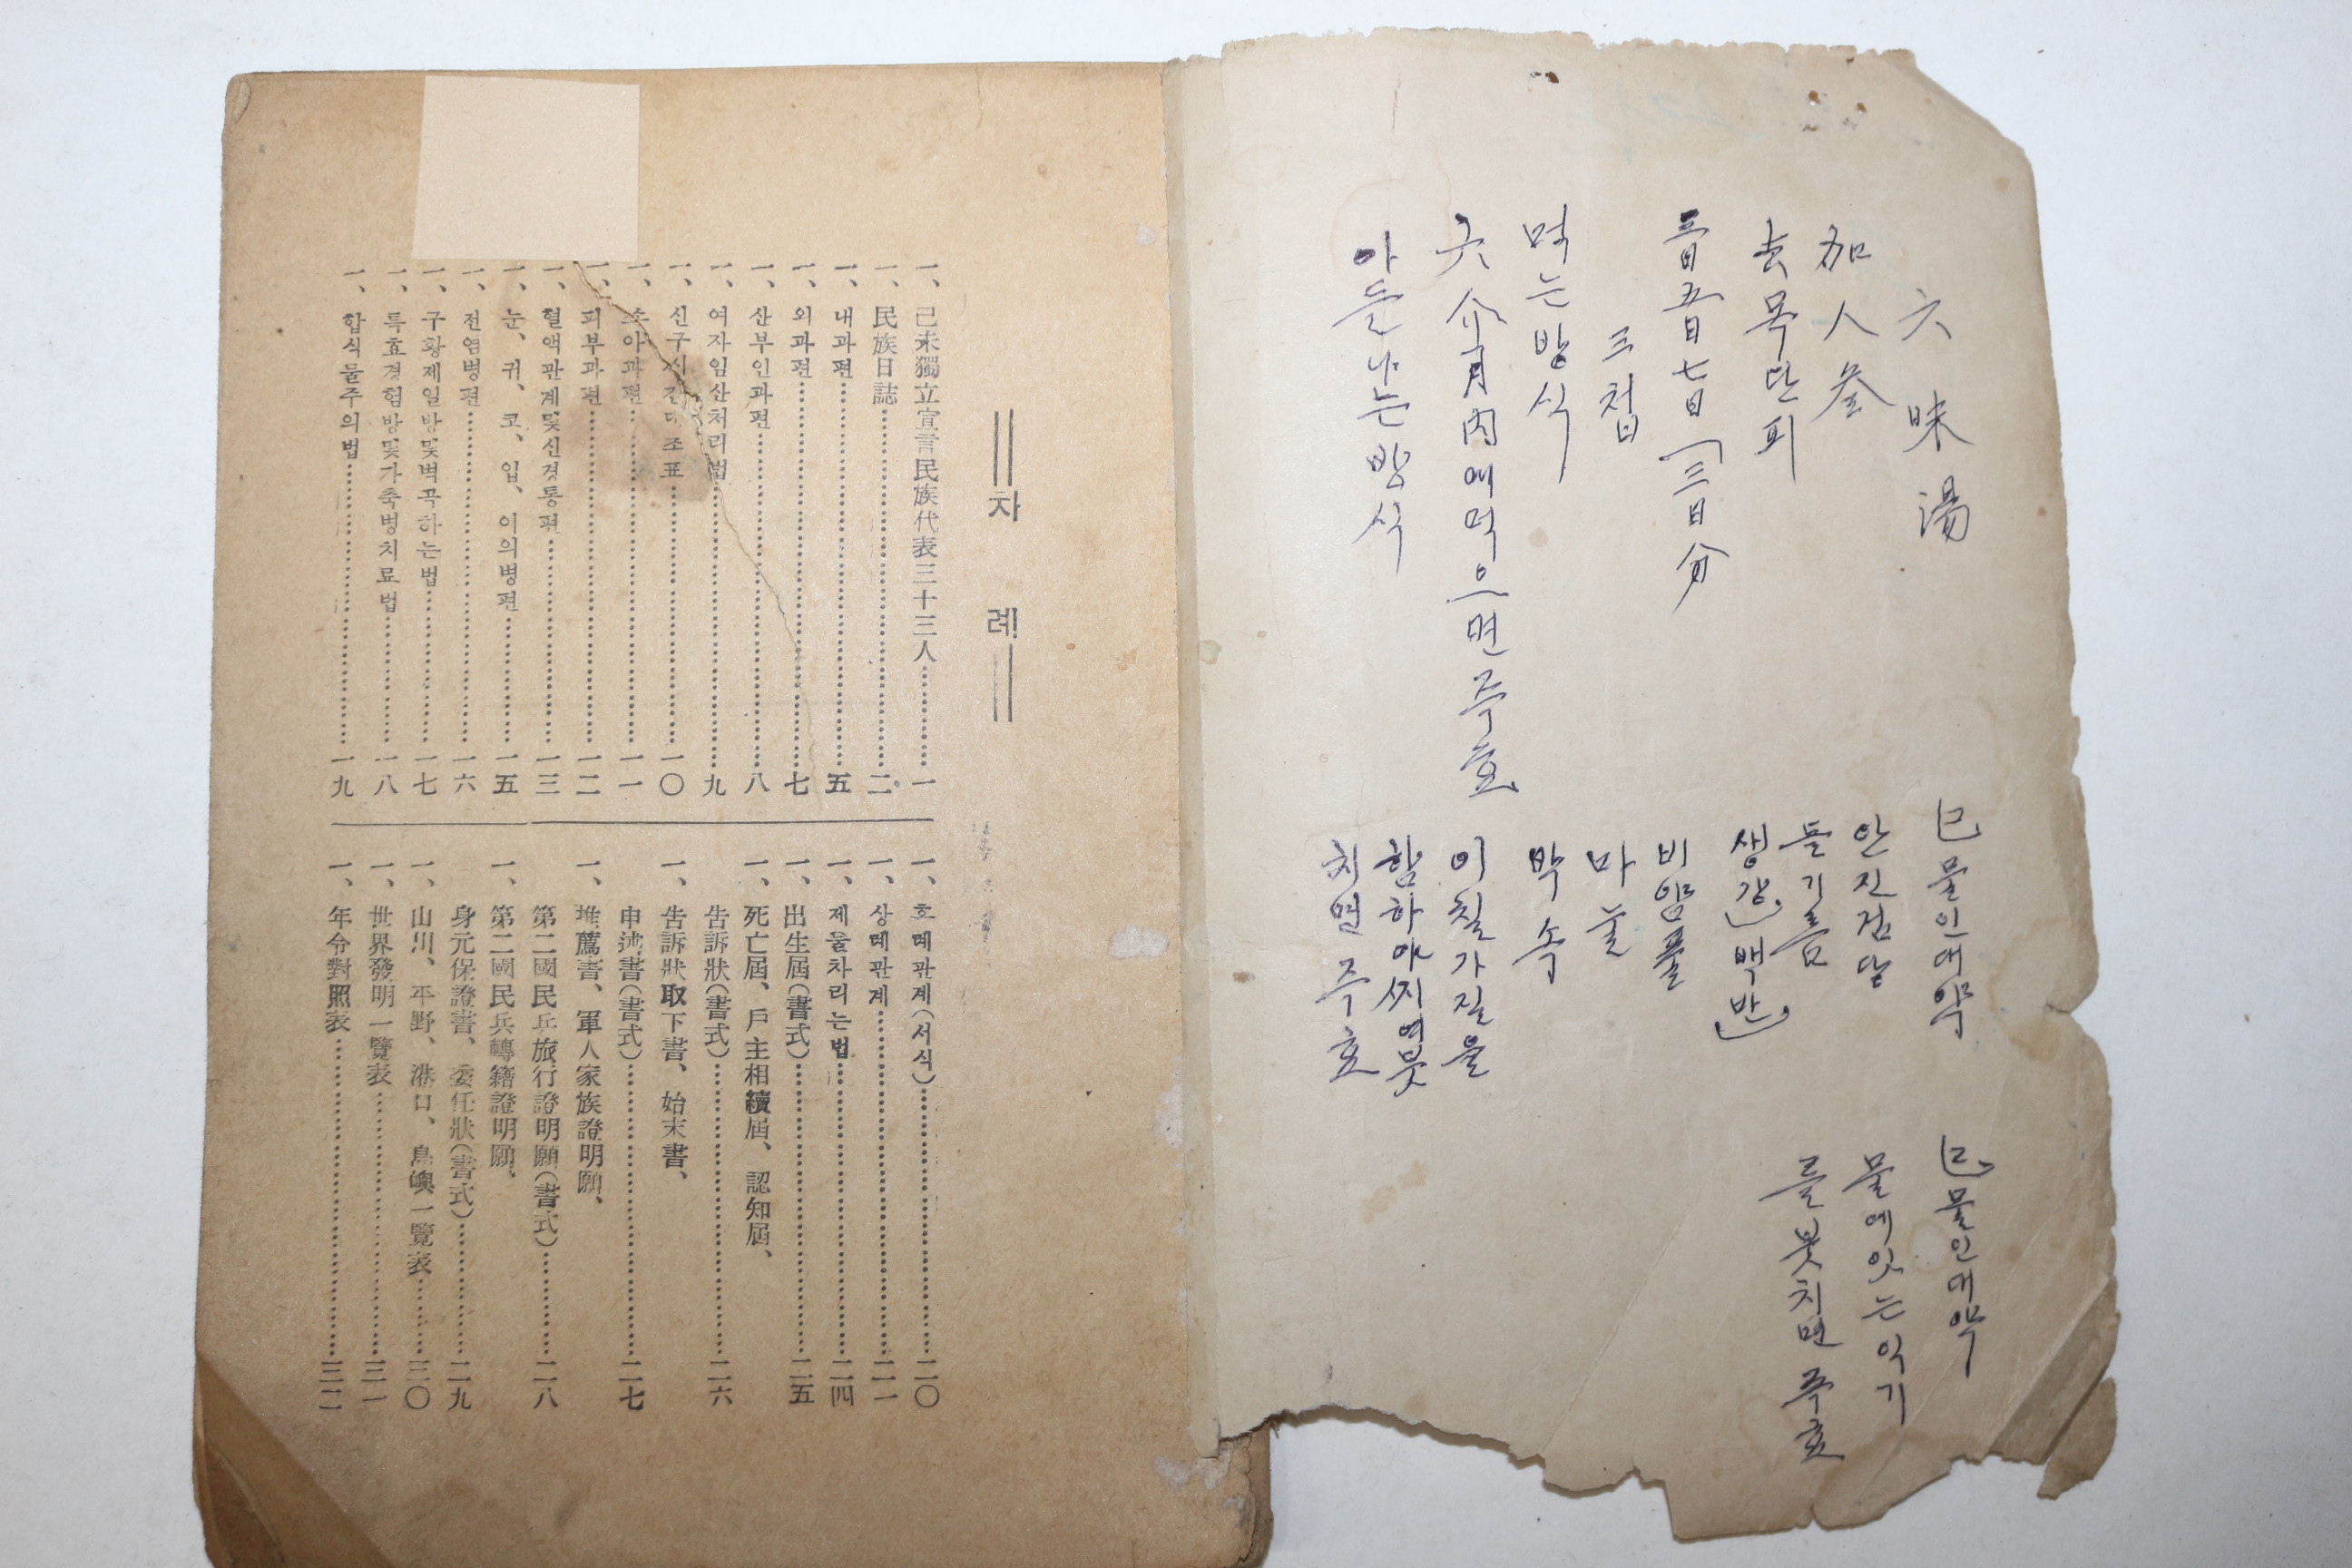 六味湯
加人參
去목단피
三日五日七日(三日分
三첩
먹는방식
六介月內에먹으면주효
아들나는방식
巳물인대약
안진검당
들기름
생강 백반
비암풀
마눌
박속
이칠가질을
함하야찌여붓
치면주효
巳물인대약
물에잇는익기
를붓치면주효
차례
一、己未獨立宣言民族代表三十三人…………一
一、民族日誌…………二
一、내과편…………五
一、외과편…………七
一、산부인과편…………八
一、여자임산처리법…………九
一、신구시간대조표…………一〇
一、소아과편…………一一
一、피부과편…………一二
一、혈액관계및신경통편…………一三
一、눈、귀、코、입、이의병편…………一五
一、전염병편…………一六
一、구황제일방및벽곡하는법…………一七
一、특효경험방및가축병치료법…………一八
一、합식물주의법…………一九
一、호례관계(서식)…………二〇
一、상례관계…………二一
一、제물차리는법…………二四
一、出生屆(書式)…………二五
一、死亡屆、戶主相續屆、認知屆、
告訴狀(書式)…………二六
一、告訴狀取下書、始末書、
申述書(書式)…………二七
一、推薦書、軍人家族證明願、
第二國民兵旅行證明願(書式)…………二八
一、第二國民兵轉籍證明願、
身元保證書、委任狀(書式)…………二九
一、山川、平野、港口、島嶼一覽表…………三〇
一、世界發明一覽表…………三一
一、年令對照表…………三二